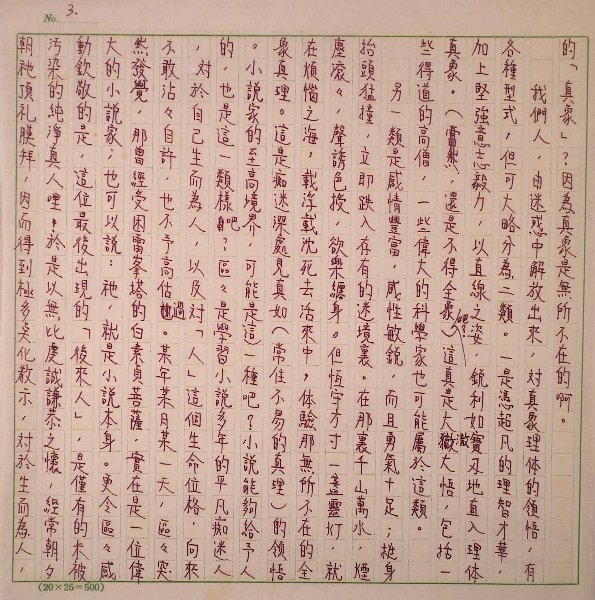 No. 3.
的「真象」?因為真象是無所不在的啊。
我們人,由迷惑中解放出來,對真象理体的領悟,有
各種型式,但可大略分為二類。一是憑超凡的理智才華,
加上堅強意志毅力,以直線之姿,銳利如寶刃地直入理体
真象。(當然,還是不得全象吧?)這真是大徹大悟,包括一
些得道的高僧,一些偉大的科學家也可能屬於這類。
另一類是感情豐富,感性敏銳,而且勇氣十足;挺身
抬頭猛撞,立即跌入存有的迷境裏。在那裏千山萬水,煙
塵滾々,聲誘色授,欲樂纏身。但恆守方寸一盞靈灯,就
在煩惱之海,載浮載沈死去活來中,体驗那無所不在的全
象真理。這是痴迷深處見真如(常住不易的真理)的領悟
。小說家的至高境界,可能是這一種吧?小說能夠給予人
的,也是這一類樣吧?區々是學習小說多年的平凡痴迷人
,對於自己生而為人,以及對「人」這個生命位格,向來
不敢沾々自許,也不予高估過。某年某月某一天,區々突
然發覺,那曾經受困雷峯塔的白素貞菩薩,實在是一位偉
大的小說家;也可以說:祂,就是小說本身。更令區々感
動欽敬的是,這位最後出現的「後來人」,是僅有的未被
污染的純淨真人哩。於是以無比虔誠謙恭之懷,經常朝夕
朝祂頂礼膜拜,因而得到極多炎化啟示,對於生而為人,
(20×25=500)